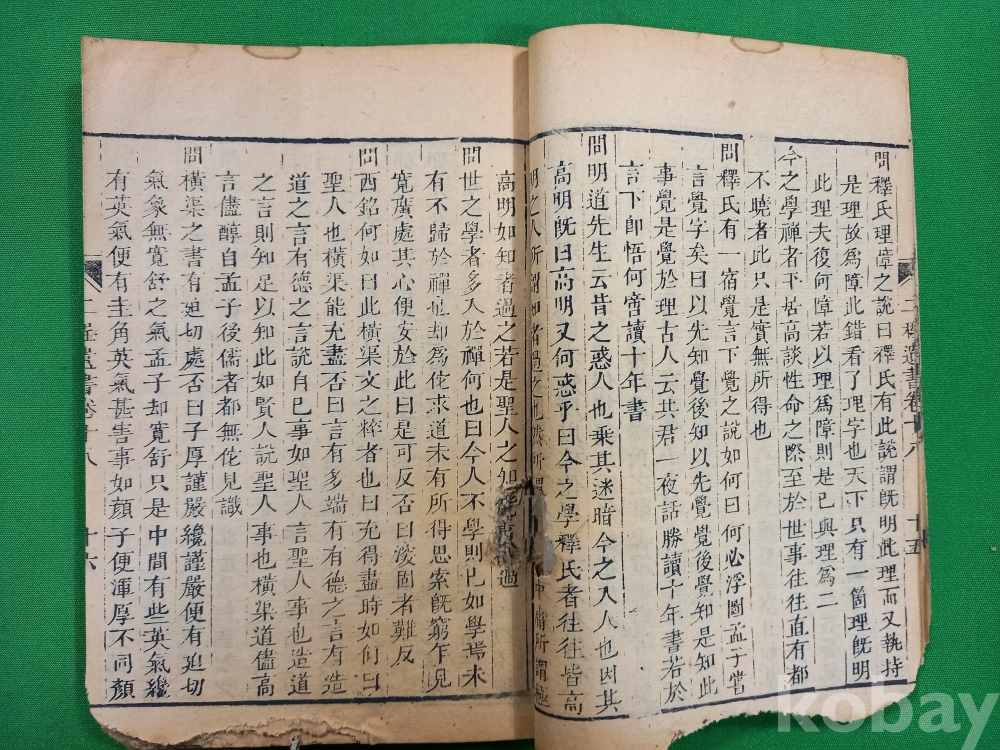 問釋氏理障之說曰釋氏有此說謂旣明此理而又執持
是理故爲障此錯看了理字也天下只有一箇理旣明
此理夫復何障若以理爲障則是已與理爲二
今之學禪者平居高談性命之際至於世事往往直有都
不曉者此只是實無所得也
問釋氏有一宿覺言下覺之說如何曰何必浮圖孟子嘗
言覺字矣曰以先知覺後知以先覺覺後覺知是知此
事覺是覺於理古人云共君一夜話勝讀十年書若於
言下卽悟何啻讀十年書
問明道先生云昔之惑人也乘其迷暗今之入人也因其
高明旣曰高明又何惑乎曰今之學釋氏者往往皆高
明之人所謂知者過之也然所謂所謂極
高明如知者過之若是聖人之知過
問世之學者多入於禪何也曰今人不學則已如學焉未
有不歸於禪也却爲佗求道未有所得思索旣窮乍見
寬廣處其心便安於此曰是可反否曰深固者難反
問西銘何如曰此橫渠文之粹者也曰充得盡時如何曰
聖人也橫渠能充盡否曰言有多端有有德之言有造
道之言有德之言說自己事如聖人言聖人事也造道
之言則知足以知此如賢人說聖人事也橫渠道儘高
言儘醇自孟子後儒者都無佗見識
問橫渠之書有迫切處否曰子厚謹嚴纔謹嚴便有迫切
氣象無寬舒之氣孟子却寬舒只是中間有些英氣纔
有英氣便有圭角英氣甚害事如顏子便渾厚不同顏
二程遺書卷十八
十五
二程遺書卷十八
十六
kobay